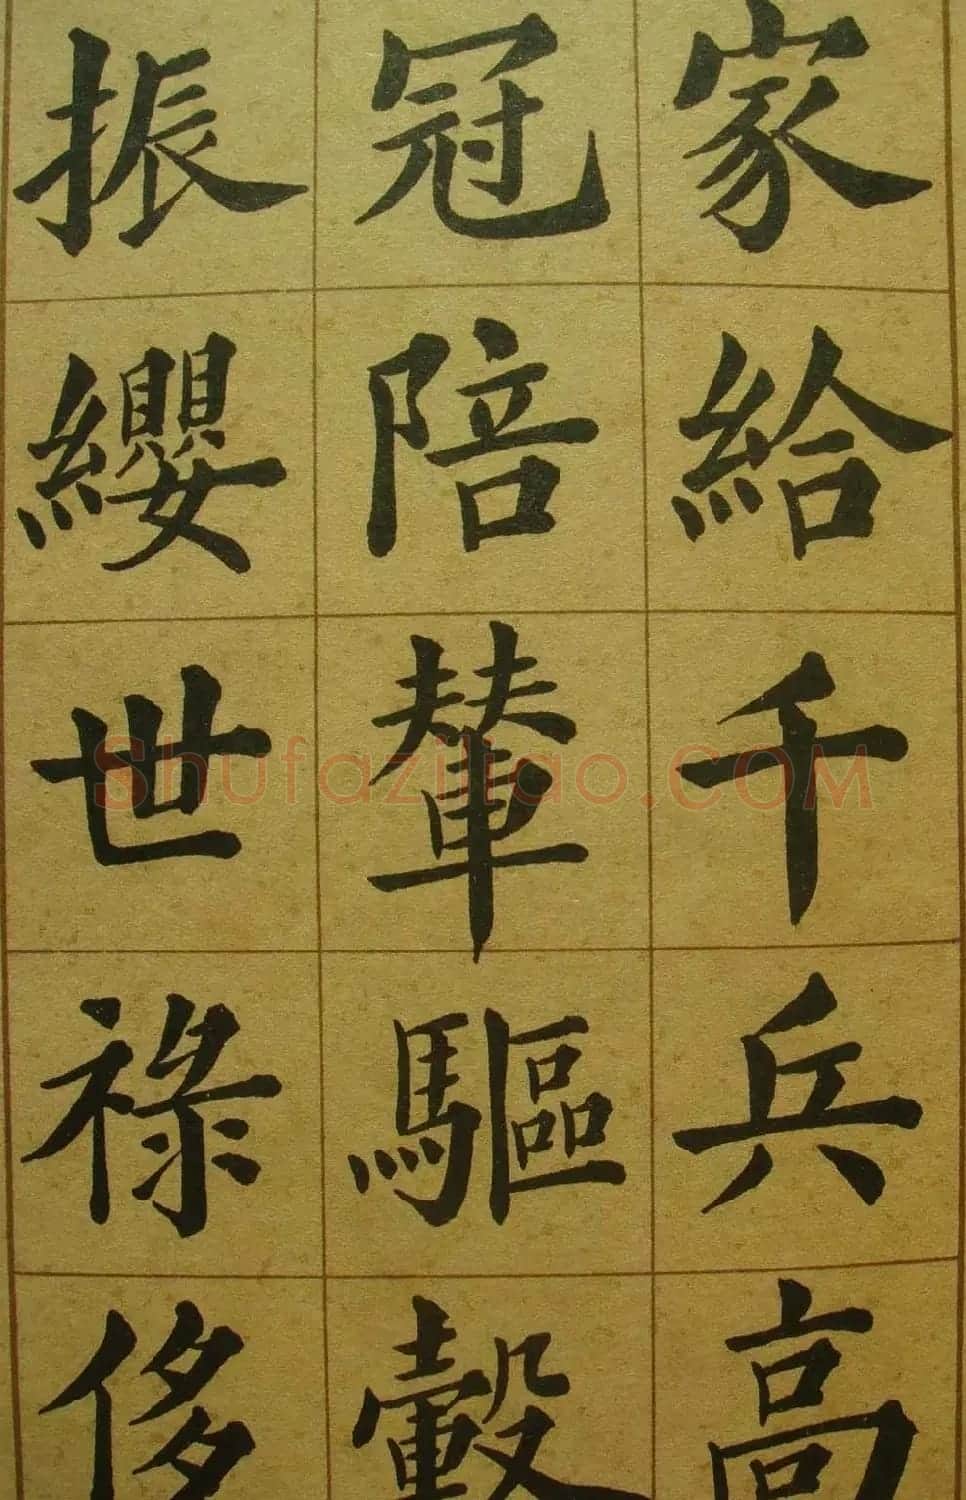 家給千兵高
冠陪輦驅轂
振纓世祿侈
Shufaziliao.COM